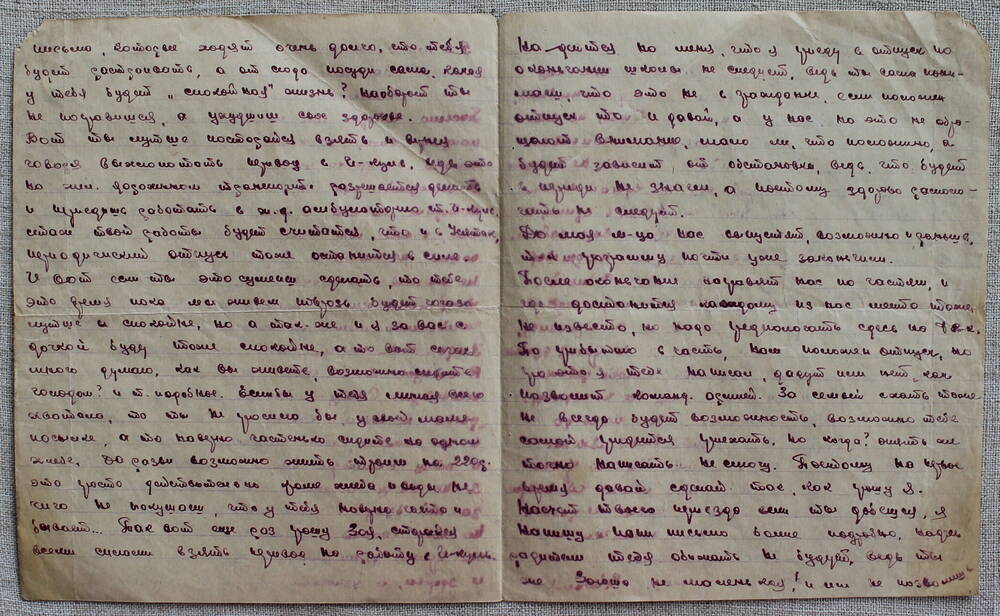 письмо, которые ходят очень долго, что тебя
будет расстраивать, а от сюда посуди сама какая
у тебя будет „спокойная" жизнь? Наоборот ты
не поправишся, а ухудшиш свое здоровье.
Вот ты лутше постарайся взять и
выхлопотать перевод в ведь это
на жел. дорожном транспорте разрешается делать
и приедешь работать в ж.д. амбулаторию ст.
стаж твой работы будет считатся, что и в
периодический отпуск тоже останится в силе.
И вот если ты это сумееш сделать, то тебе
это время пока мы живем врозь будет гораздо
лутше и спокойне, но а так-же и я за вас с
дочкой буду тоже спокойне, а то вот сейчас
много думаю, как вы живете, возможно сидите
голодом? и т. подобное. Если бы у тебя
хватало, то ты не просила бы у моей мамы
посылке, а то наверно частенько сидите на одном
хлебе. Да разви возможно жить троим на 220 р.
это просто действительно кроме хлеба и воды не
чего не покушаеш, что у тебя наверно часто и
бывает... Так вот еще раз прошу Зоя, старайся
всеми силами взять перевод на работу в
Надейтся на меня, что я приеду в отпуск по
окончании школы не следует, ведь ты сама пони-
маеш, что это не в гражданке, если положен
отпуск то и давай, а у нас на это не обра-
щают внимание, мало ли, что положино, а
будет зависит от обстановки, ведь, что будет
в периди не знаем, а поэтому здорово расчи-
тывать не следует.
До мая м-ца нас выпустят, возможно и раньше,
т.к. программу почти уже закончили.
После окончание направят нас по частям, и
где достанится каждому из нас место тоже
не известно, но надо предполагать здесь на
По прибытию в часть, нам положен отпуск, но
я тебе написал, дадут или нет, как
позволит команд. армией. За семьей ехать тоже
не всегда будет возможность, возможно тебе
самой придется приехать, но когда? опять же
точно написать не смогу. Поэтому на первое
время давай сделай так, как пишу я.
Насчет твоего приезда если ты добъешся, я
напишу маме письмо более подробно, надеюсь
родители тебя обижать не будут, ведь ты
же Зоюша не маленькая! и им не позволишь